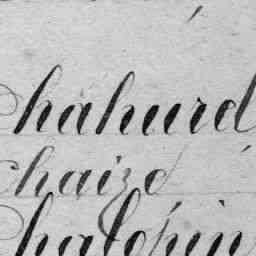 hahurd
chaizé
halopin